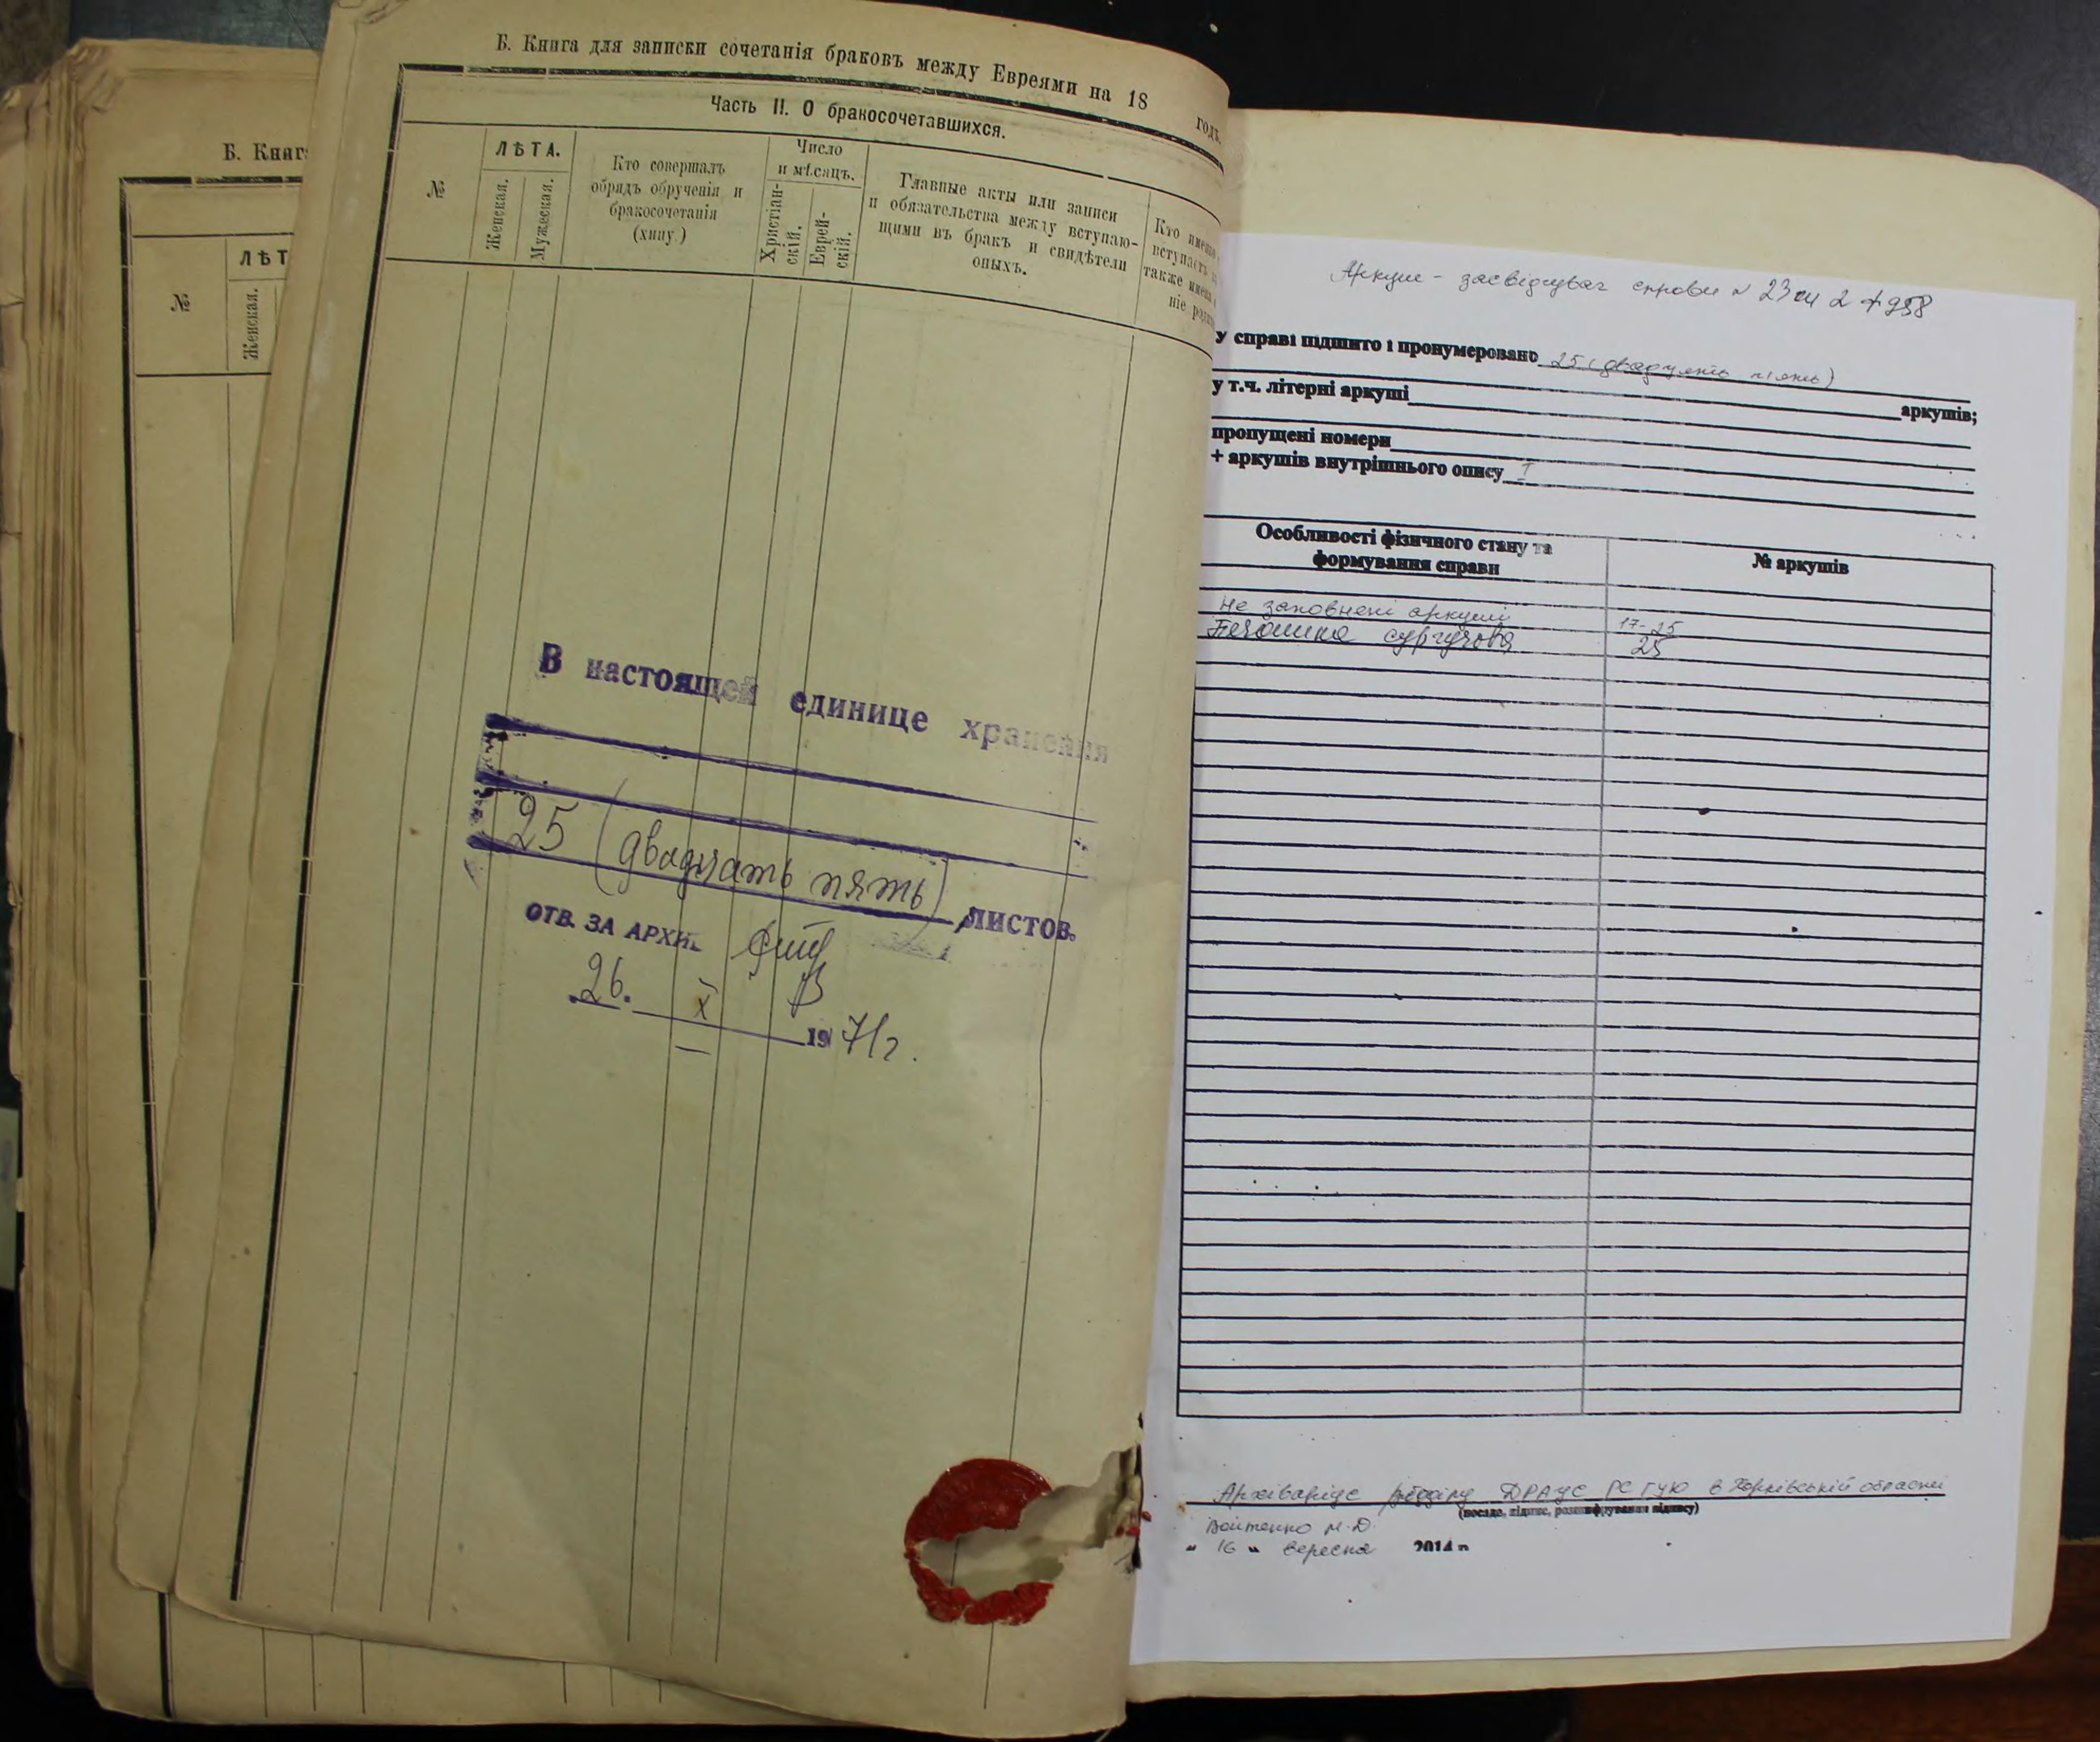 Б. Книг
ЛѢТ
№
Женская.
Б. Книга для записки сочетанія браковъ между Евреями на 18 годъ.
Часть II. О бракосочетавшихся.
№
ЛѢТА.
Женская.
Мужеская.
Кто совершалъ
обрядъ обрученія и
бракосочетанія
(хипу.)
Число
и мѣсяцъ.
Христіан-
скій.
Еврей-
скій.
Главные акты или записи
и обязательства между вступаю-
щими въ бракъ и свидѣтели
оныхъ.
Кто именно
вступаетъ
также имена
ніе
В настоящей единице хранения
25 (двадцать пять) листов.
ОТВ. ЗА АРХИ
26. X 1971г.
Аркуш - засвідчувач справи № 23 оп 2 ф 958
У справі підшито і пронумеровано 25 (двадцять п'ять)
аркушів;
у т.ч. літерні аркуші
пропущені номери
+ аркушів внутрішнього опису 1
Особливості фізичного стану та
формування справи
№ аркушів
Не заповнені аркуші 17-25
Печатка сургучова 25
Архіваріус відділу ДРАЦС РС ГУЮ в Харківській області
(посада, підпис, розшифрування підпису)
Войтенко М.Д.
" 16 " вересня 2014 р.